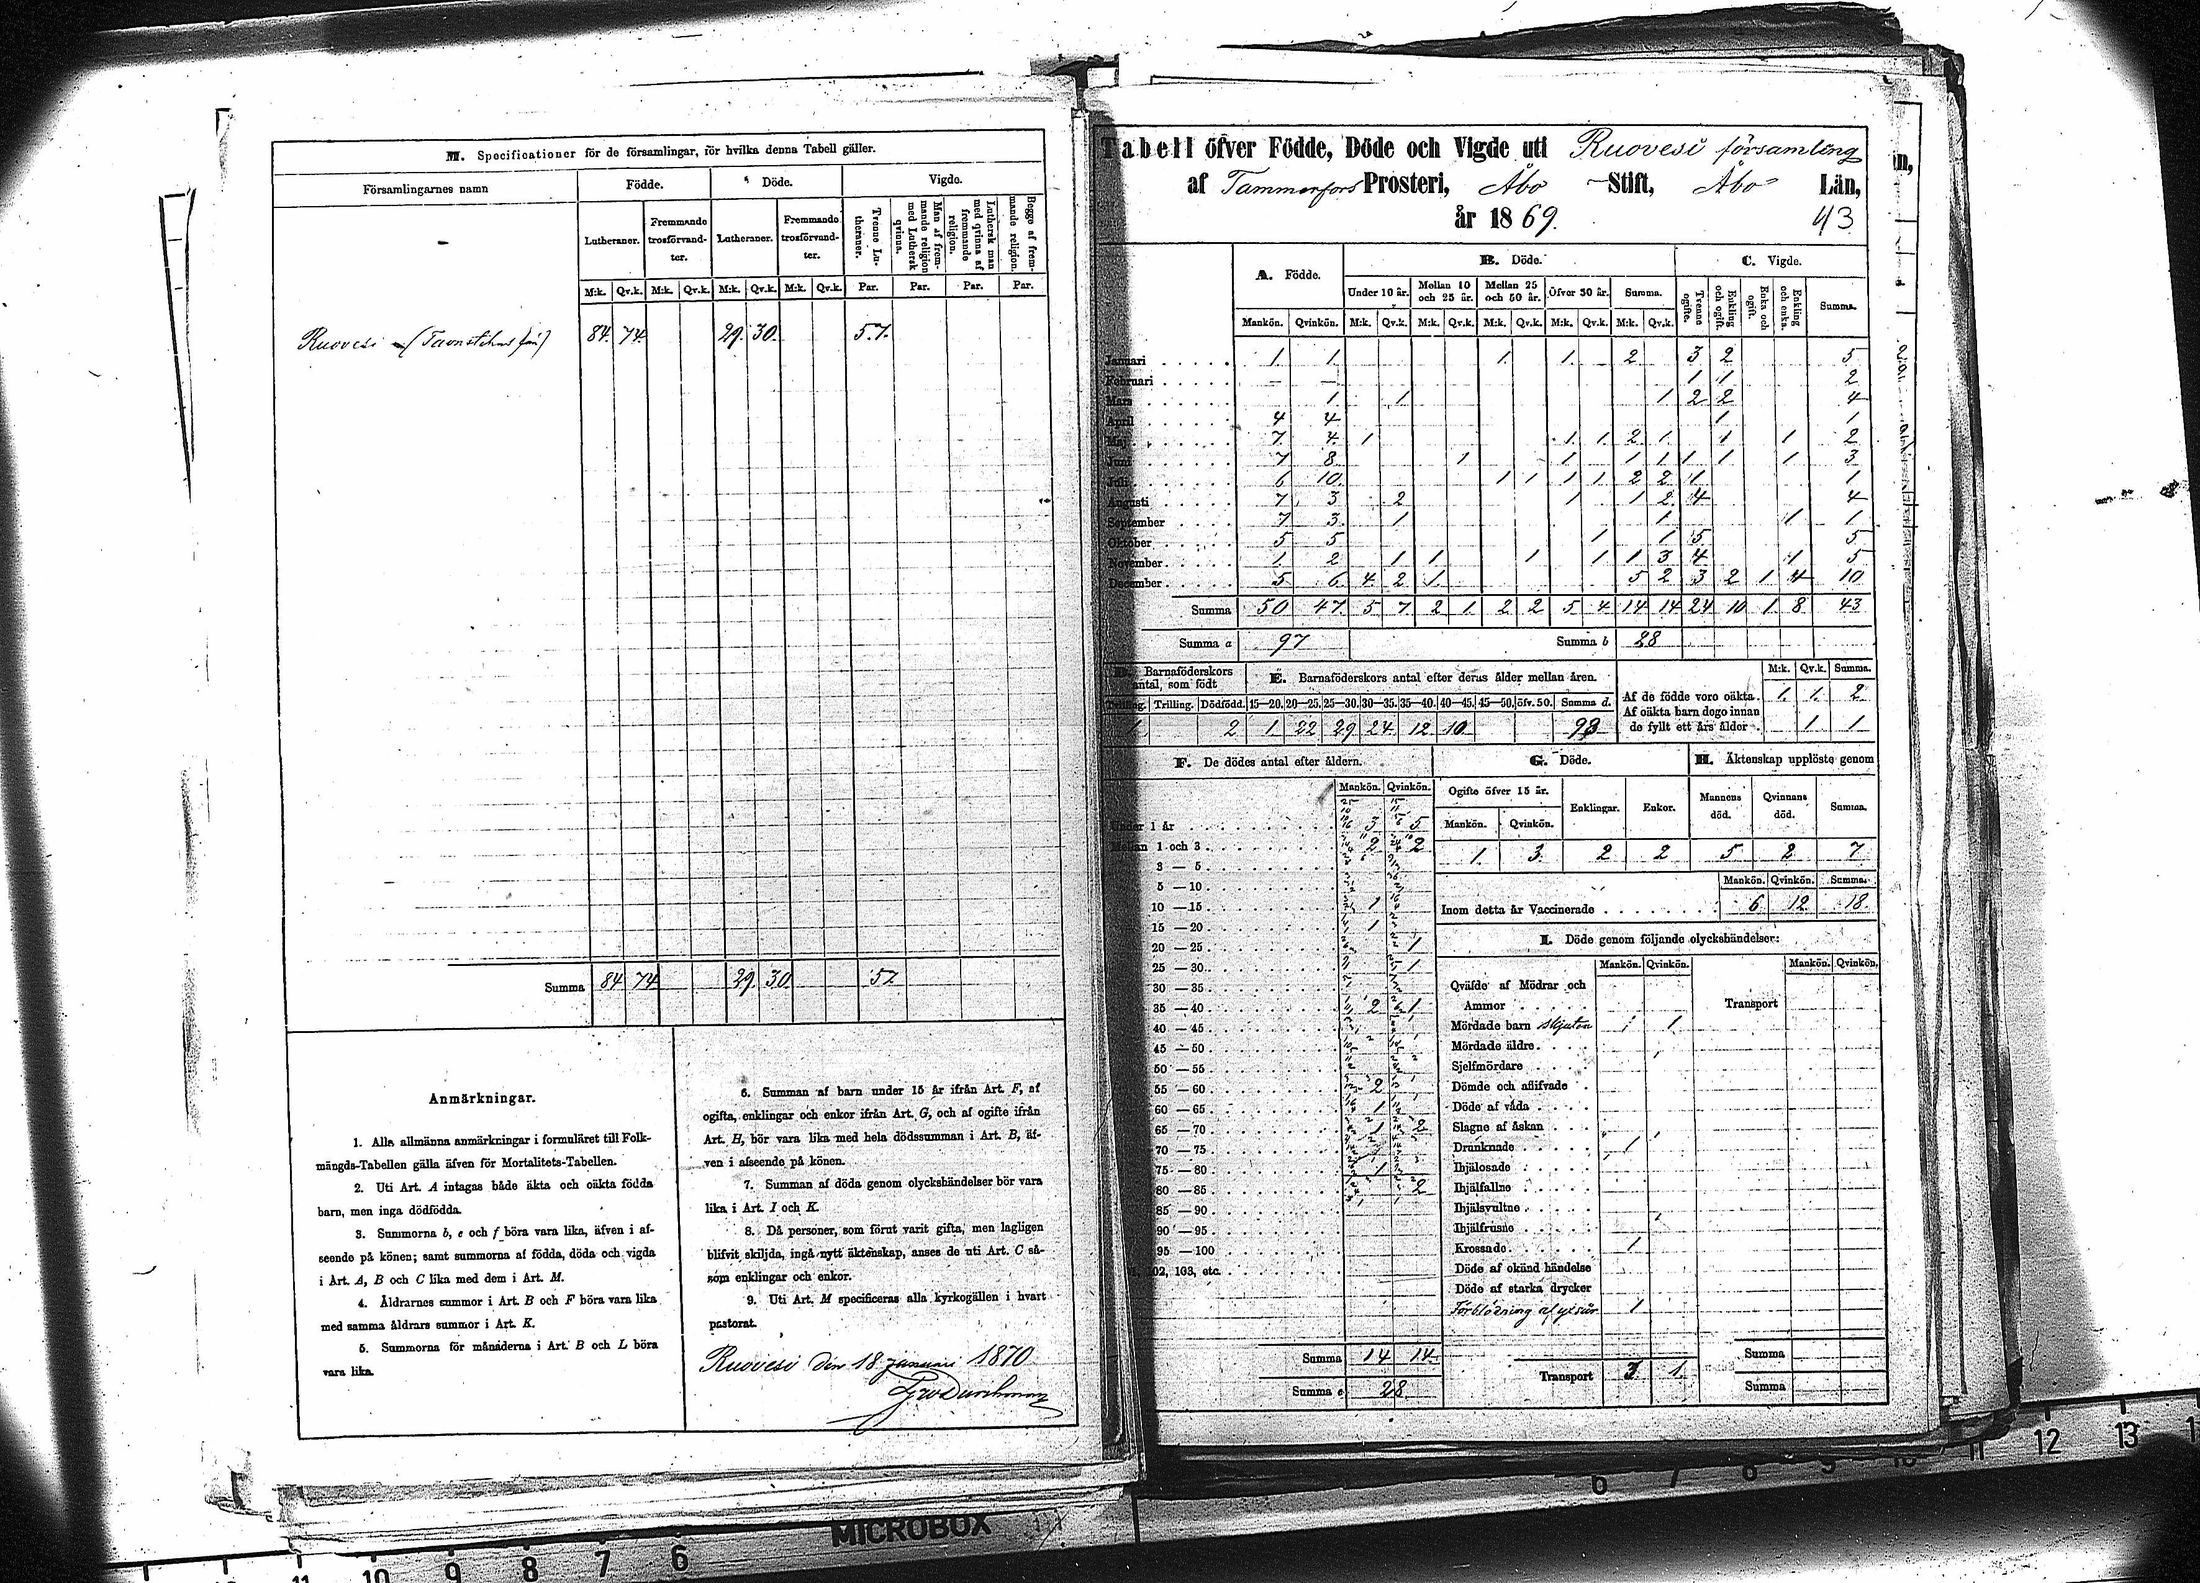 M. Specificationer för de församlingar, för hvilka denna Tabell gäller.
Församlingarnes namn
Födde. Döde. Vigde.
Lutheraner. Fremmande trosförvandter. Lutheraner. Fremmande trosförvandter. Tvenne Lutheraner. Man af fremmande religion med Luthersk qvinna. Luthersk man med qvinna af fremmande religion. Begge af fremmande religion.
M:k. Qv.k. M:k. Qv.k. M:k. Qv.k. M:k. Qv.k. Par. Par. Par. Par.
Ruovesi 84. 74. 29. 30. 57.
Summa 84 74 29. 30. 57.
Anmärkningar.
1. Alla allmänna anmärkningar i formuläret till Folk-
mängds-Tabellen gälla äfven för Mortalitets-Tabellen.
2. Uti Art. A intagas både äkta och oäkta födda
barn, men inga dödfödda.
3. Summorna b, e och f böra vara lika, äfven i af-
seende på könen; samt summorna af födda, döda och vigda
i Art. A, B och C lika med dem i Art. M.
4. Åldrarnes summor i Art. B och F böra vara lika
med samma åldrars summor i Art. K.
5. Summorna för månaderna i Art. B och L böra
vara lika.
6. Summan af barn under 15 år ifrån Art. F, af
ogifta, enklingar och enkor ifrån Art. G, och af ogifte ifrån
Art. H, bör vara lika med hela dödssumman i Art. B, äf-
ven i afseende på könen.
7. Summan af döda genom olyckshändelser bör vara
lika i Art. I och K.
8. Då personer, som förut varit gifta, men lagligen
blifvit skiljda, ingå nytt äktenskap, anses de uti Art. C så-
som enklingar och enkor.
9. Uti Art. M specificeras alla kyrkogällen i hvart
pastorat.
Ruovesi den 18 januari 1870
Tabell öfver Födde, Döde och Vigde uti Ruovesi församling
af Tammerfors Prosteri, Åbo Stift, Åbo Län,
år 1869. 43
A. Födde. B. Döde. C. Vigde.
Under 10 år. Mellan 10 och 25 år. Mellan 25 och 50 år. Öfver 50 år. Summa. Tvenne ogifte. Enkling och ogift. Enka och ogift. Enkling och enka. Summa.
Mankön. Qvinkön. M:k. Qv.k. M:k. Qv.k. M:k. Qv.k. M:k. Qv.k. M:k. Qv.k.
Januari 1. 1. 1. 1. 2 3 2 5
Februari — — 1 1 2
Mars 1 1 1 2 2 4
April 4 4 1 1
Maj 7. 4. 1 1. 1. 2 1. 1 1 2
Juni 7 8 1 1 1 1 1 1 1 3
Juli 6 10. 1 1 1 1 2 2 1 1
Augusti 7 3 2 1 1 2 4 4
September 7 3 1 1 1 1
Oktober 5 5 1 1 5 5
November 1. 2 1 1 1 1 1 3 4 1 5
December 5 6 4 2 1 5 2 3 2 1 4 10
Summa 50 47. 5 7. 2 1. 2 2 5 4 14 14 24 10 1 8 43
Summa a 97 Summa b 28
D. Barnaföderskors antal, som födt
E. Barnaföderskors antal efter deras ålder mellan åren.
M:k. Qv.k. Summa.
Trilling. Dödfödd. 15—20. 20—25. 25—30. 30—35. 35—40. 40—45. 45—50. öfv. 50. Summa d.
1 2 1 22 29 24 12 10
Af de födde voro oäkta. 1. 1. 2
Af oäkta barn dogo innan
de fyllt ett års ålder 1 1
F. De dödes antal efter åldern.
Mankön. Qvinkön.
Under 1 år 3 5
Mellan 1 och 3 2 2
3 — 5
5 — 10
10 — 15 1
15 — 20 1
20 — 25 1
25 — 30 1
30 — 35
35 — 40 2 1
40 — 45
45 — 50
50 — 55
55 — 60 2
60 — 65 1
65 — 70 1 2
70 — 75
75 — 80 1
80 — 85 2
85 — 90
90 — 95
95 — 100
102, 103, etc.
Summa 14 14
Summa e 28
G. Döde.
Ogifte öfver 15 år. Enklingar. Enkor.
Mankön. Qvinkön.
1. 3. 2 2
H. Äktenskap upplöste genom
Mannens död. Qvinnans död. Summa.
5 2 7
Mankön. Qvinkön. Summa.
Inom detta år Vaccinerade 6 12 18.
I. Döde genom följande olyckshändelser:
Mankön. Qvinkön. Mankön. Qvinkön.
Qväfde af Mödrar och
Ammor Transport
Mördade barn skjuten 1
Mördade äldre
Sjelfmördare
Dömde och aflifvade
Döde af våda
Slagne af åskan
Drunknade 1
Ihjälosade
Ihjälfallne
Ihjälsvultne
Ihjälfrusne
Krossade 1
Döde af okänd händelse
Döde af starka drycker
Förblödning af yxsår 1
Transport 3 1
Summa
Summa
MICROBOX
10 9 8 7 6
6 7 8 9 10 11 12 13